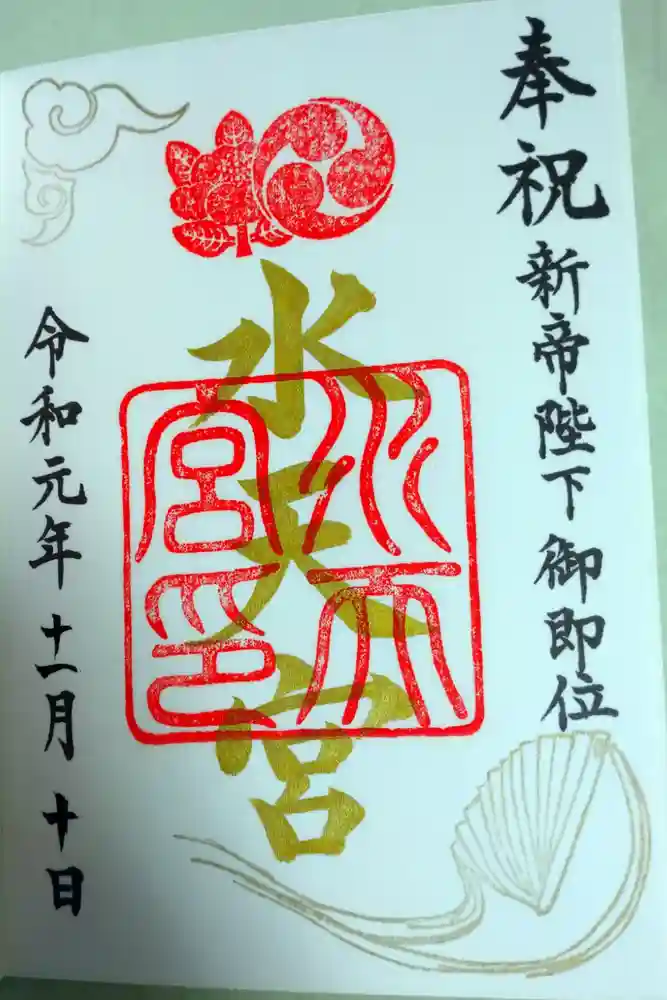 奉祝 新帝陛下 御即位
水天宮
水天宮印
令和元年 十一月 十日